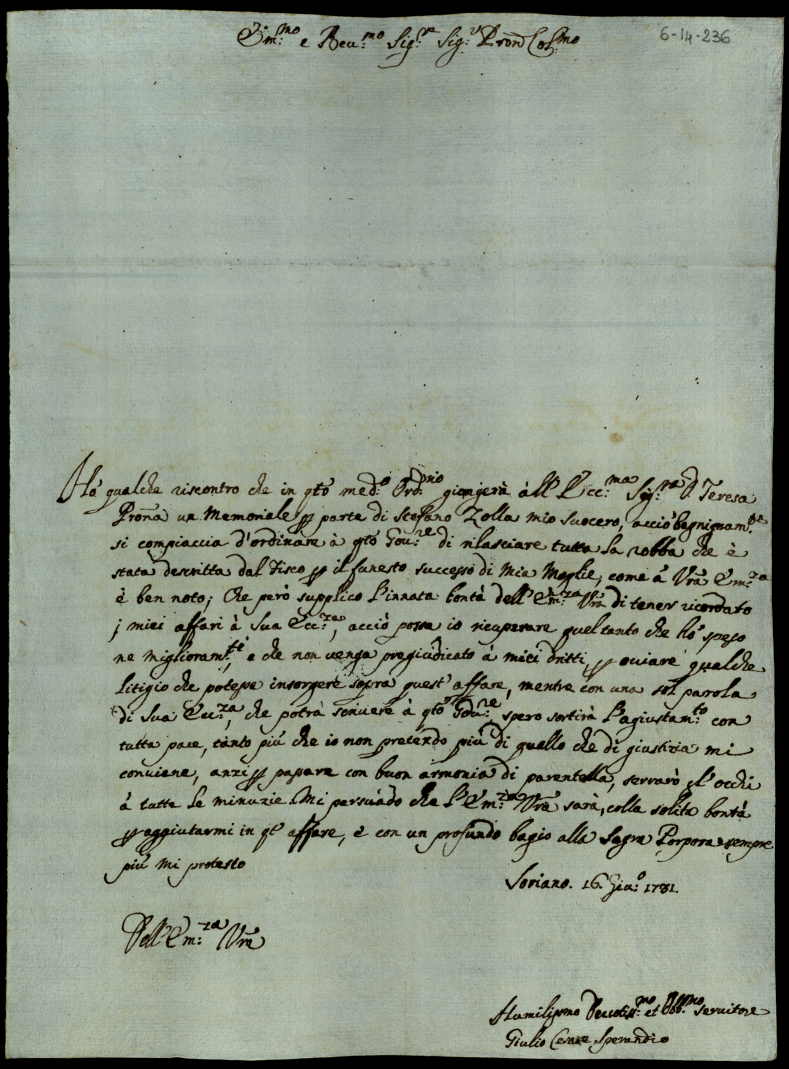 Em:mo e Reu:mo Sig:re Sig:r Pron Col:mo
6-14-236
Hò qualche riscontro che in qto med:o Ord:rio giongerà all'Ecc:ma Sig:ra D Teresa
Prona un Memoriale p parte di Stefano Zolla mio suocero, acciò begnignam:te
si compiaccia d'ordinare à qto Gou:re di rilasciare tutta la robba che è
stata descritta dal Fisco p il funesto successo di Mia Moglie, come à Vra Em:za
è ben noto; Che però supplico l'innata bontà dell'Em:za Vra di tener ricordato
j miei affari à Sua Ecc:za, acciò possa io ricuperare quel tanto che hò speso
ne miglioram:ti, e che non venga pregiudicato à miei dritti, p ouiare qualche
litigio che potesse insorgere sopra quest'affare, mentre con una sol parola
di Sua Ecc:za, che potrà scriuere à qto Gou:re, spero sortirà l'agiustam:to con
tutta pace, tanto più che io non pretendo più di quello che di giustizia mi
conviene, anzi p passare con buon armonia di parentella, serrarò gl'occhi
à tutte le minuzie. Mi persuado che l'Em:za Vra sarà, colla solita bontà
p aggiutarmi in qt'affare, e con un profundo bagio alla Sagra Porpora sempre
più mi protesto
Soriano. 16. Giu:o 1731.
Dell'Em:za Vra
Humilissmo Deuotiss:mo et Obb:mo seruitore
Giulio Cesare Sperandio